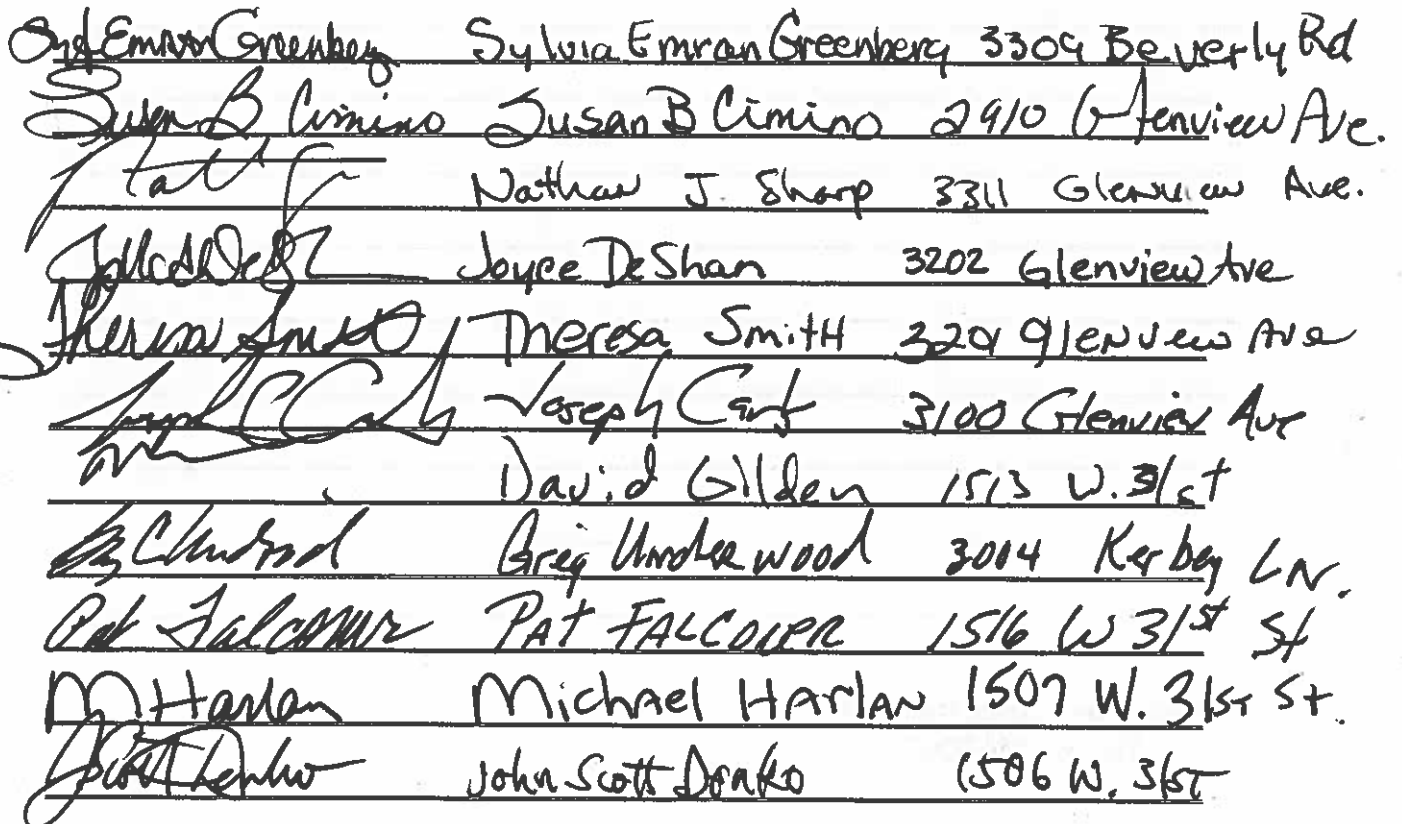 Emran Greenberg Sylvia Emran Greenberg 3309 Beverly Rd
Susan B Cimino Susan B Cimino 2910 Glenview Ave.
Nathan J Sharp 3311 Glenview Ave.
Joyce DeShan 3202 Glenview Ave
Theresa Smith Theresa Smith Glenview Ave
Joseph C Joseph 3100 Glenview Ave
David Gilden 1513 W. 31st
Greg Underwood 3004 Kerbey LN.
Pat Falconer PAT FALCONER 1516 W 31st St
M Harlan Michael Harlan 1507 W. 31st St.
J Scott Donko John Scott Donko 1506 W. 31st